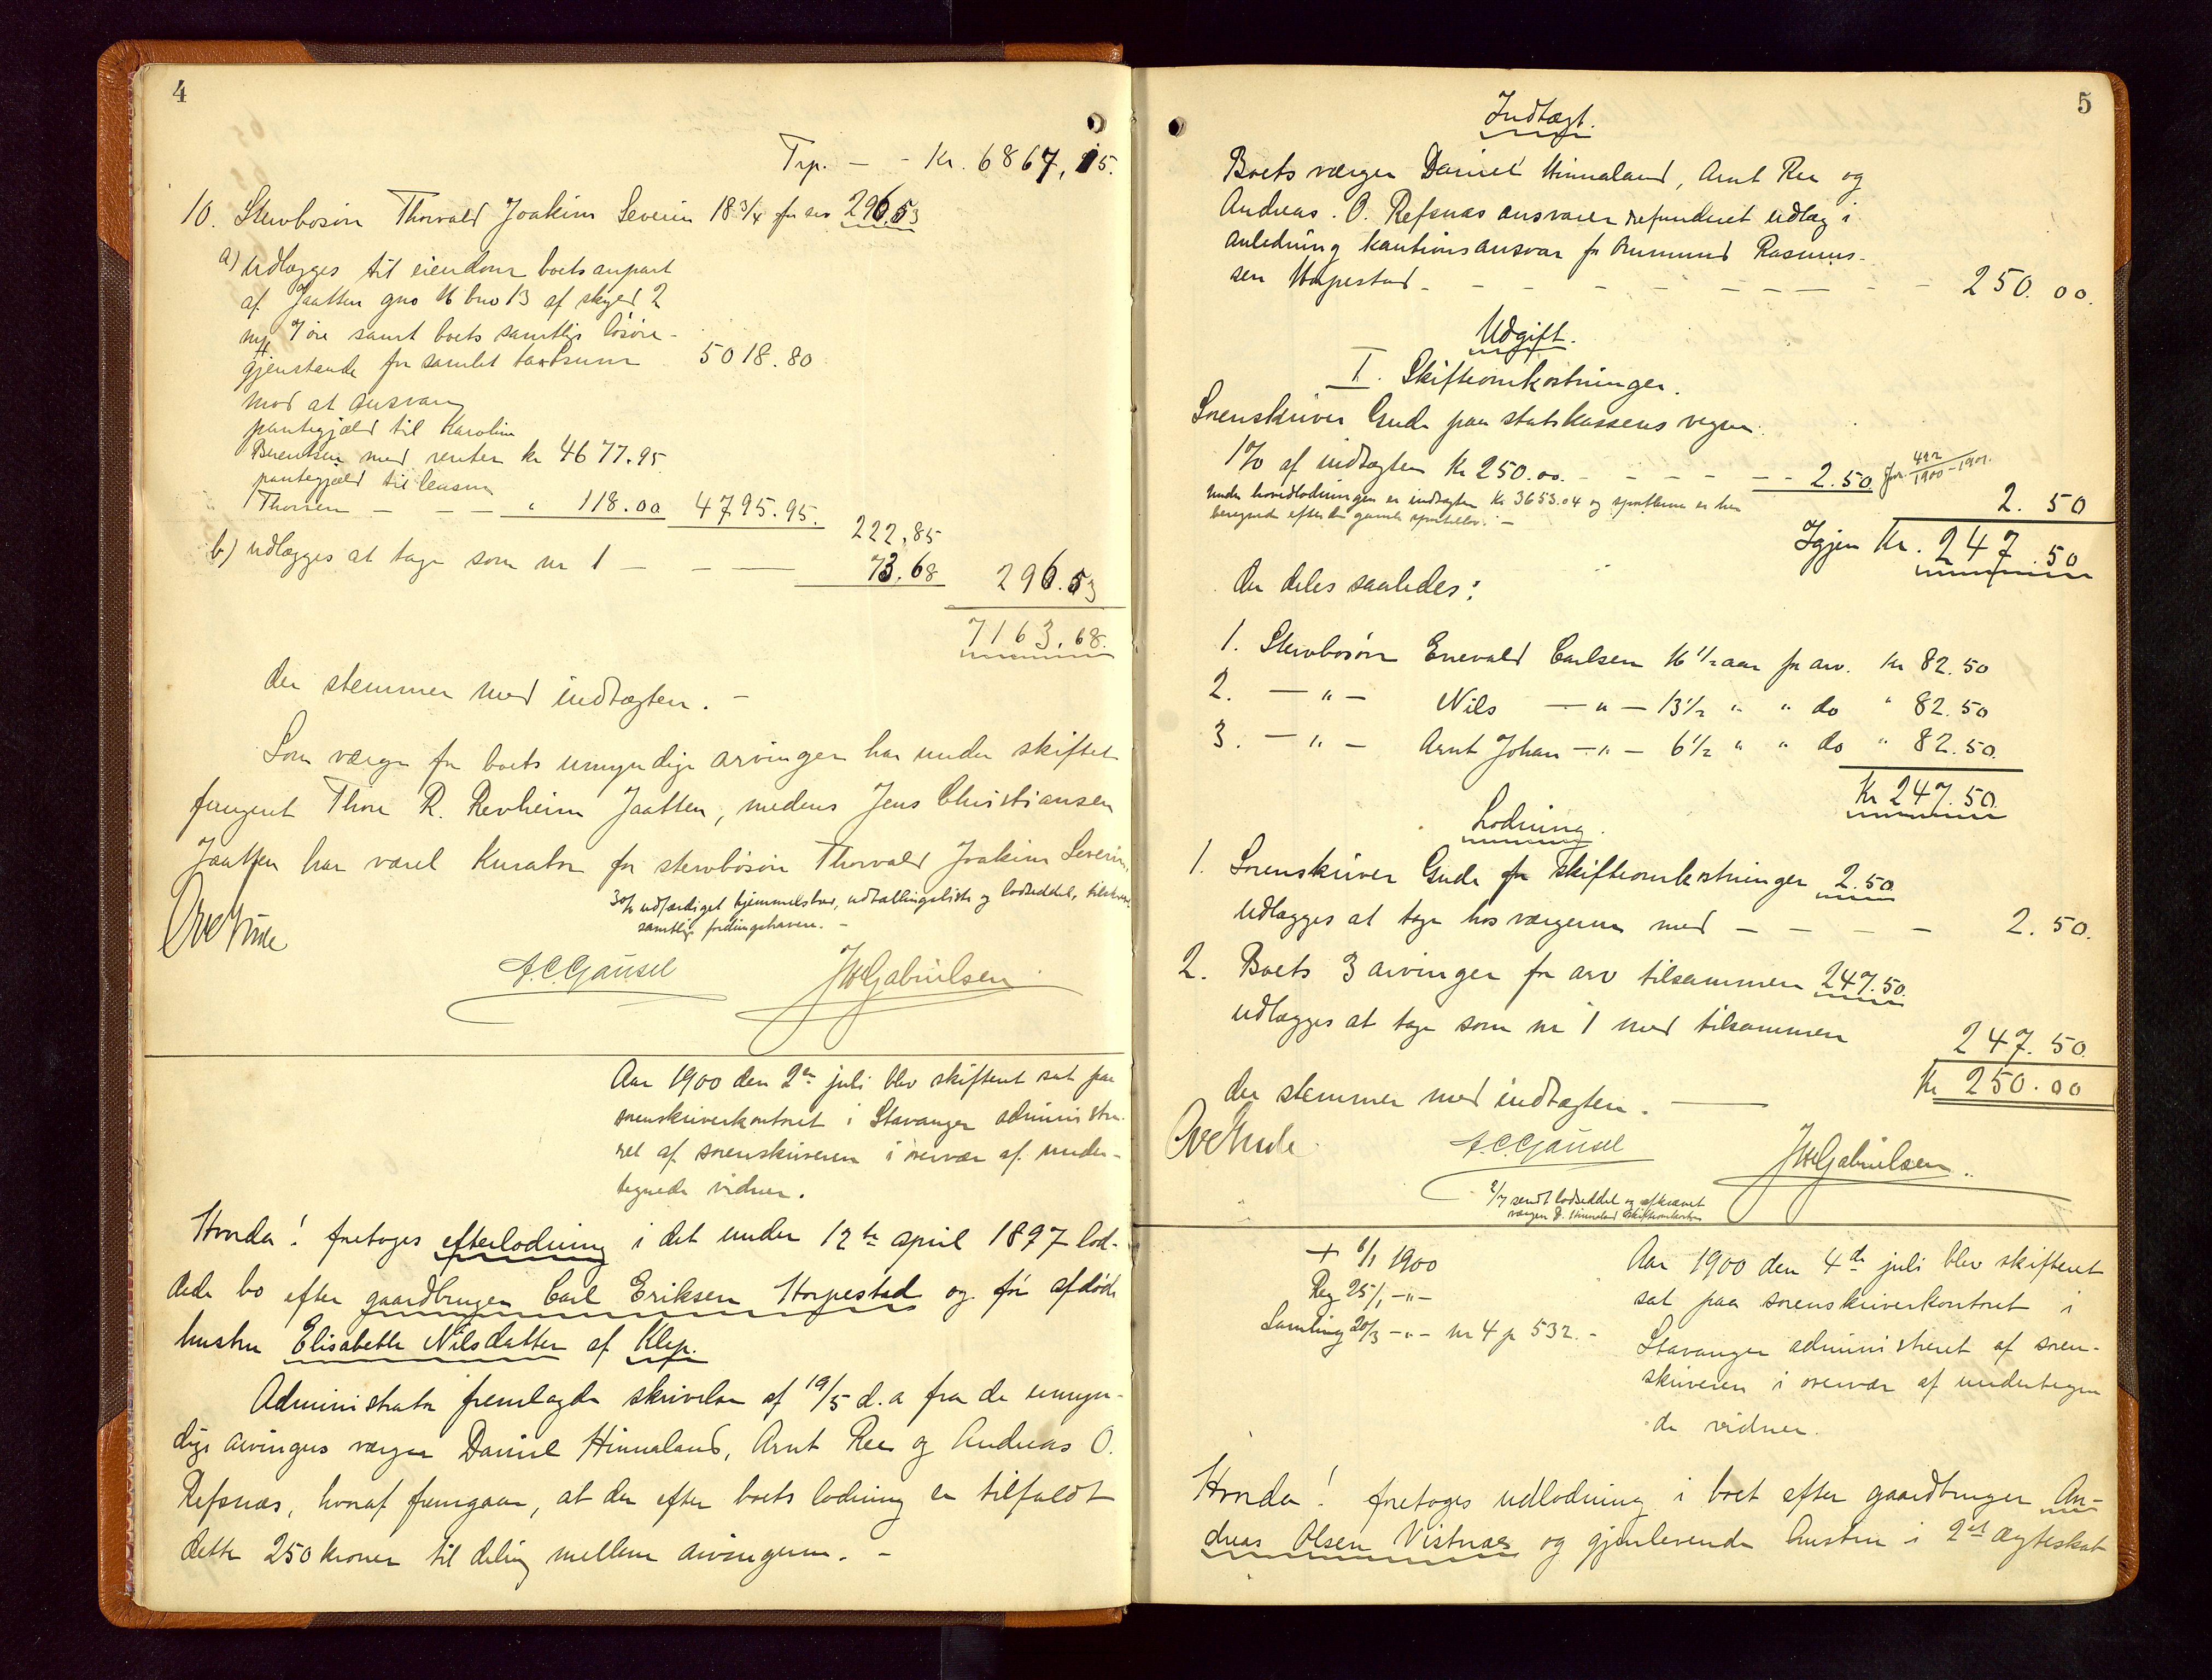 4
Trp. — - Kr. 6867,15.
10. Stervbosön Thorvald Joakim Severin 18 3/4 for arv 296.53
a) Udlægges til eiendom boets anpart
af Jaatten gno 16 bno 13 af skyld 2
mk 7 öre samt boets samtlige lösöre-
gjenstande for samlet taxtsum 5018.80
mod at ansvare
pantegjæld til Karoline
Berentsen med renter kr 4677.95
pantegjæld til
Thorsen — — — " 118.00 4795.95.
222,85
b) udlægges at tage som nr 1 — — — 73.68 296.53
7163,68.
der stemmer med indtægten. —
Som værge for boets umyndige arvinger har under skiftet
fungeret Thore R. Revheim Jaatten, medens Jens Christiansen
Jaatten har været Kurator for stervbosön Thorvald Joakim Severin.
udfærdiget hjemmelsbrev, udtællingsliste og lodseddel,
samtlige fordringshavere. —
Ove Gude
A.C. Gausel JWGabrielsen
Aar 1900 den 2en juli blev skifteret sat paa
sorenskriverkontoret i Stavanger administre-
ret af sorenskriveren i overvær af under-
tegnede vidner.
Hvorda! foretoges efterlodning i det under 12te april 1897 lod-
dede bo efter gaardbruger Carl Eriksen Horpestad og för afdöde
hustru Elisabeth Nilsdatter af Klep.
Administrator fremlagde skrivelse af 19/5 d.a fra de umyn-
dige arvingers værger Daniel Hinnaland, Arnt Ree og Andreas O.
Refsnæs, hvoraf fremgaar, at der efter boets lodning er tilfaldt
dette 250 kroner til deling mellem arvingerne. —
5
Indtægt.
Boets værger Daniel Hinnaland, Arnt Ree og
Andreas. O. Refsnæs ansvarer refunderet udlæg i
anledning kautionsansvar for Ommund Rasmus-
sen Horpestad - - - - - - — — - - 250.00.
Udgift.
I. Skifteomkostninger.
Sorenskriver Gude paa statskassens vegne:
1% af indtægten Kr 250.00. - - - - - - - 2.50 Jor. 422/1900-1901.
Under hovedlodningen er indtægten Kr 3653.04 og sportlerne er her
beregnede efter den gamle sportellov. —
2.50
Igjen Kr. 247.50
der deles saaledes:
1. Stervbosön Enevald Carlsen 16 1/2 aar for arv. Kr 82.50
2. — " — Nils — " — 13 1/2 " " do " 82.50
3. — " — Arnt Johan — " — 6 1/2 " " do " 82.50.
Kr 247.50.
Lodning.
1. Sorenskriver Gude for Skifteomkostninger 2.50
udlægges at tage hos værgerne med — — — — 2.50.
2. Boets 3 arvinger for arv tilsammen 247.50.
udlægges at tage som nr 1 med tilsammen 247.50
Kr 250.00
der stemmer med indtægten. —
Ove Gude
A.C. Gausel JWGabrielsen
2/7 sendt lodseddel og afkrævet
værgen D. Hinnaland skifteomkostn
+ 6/1 1900
Reg 25/1 -"-
Samling 20/3 -"- nr 4 p 532. -
Aar 1900 den 4de juli blev skifteret
sat paa sorenskriverkontoret i
Stavanger administreret af soren-
skriveren i overvær af undertegne
de vidner.
Hvorda! foretoges udlodning i boet efter gaardbruger An-
dreas Olsen Vistnæs og gjenlevende hustru i 2et ægteskab